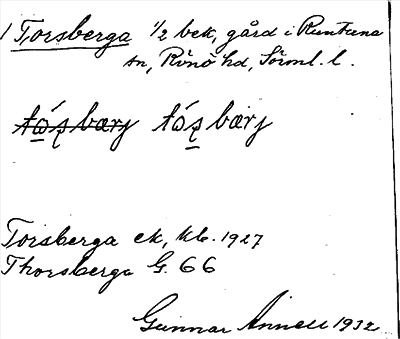 1 Torsberga 1/2 bek, gård i Runtuna
sn, Rönö hd, Sörml. l.
tósbærj
Torsberga ek, kb. 1927
Thorsberga G. 66
Gunnar Annell 1932